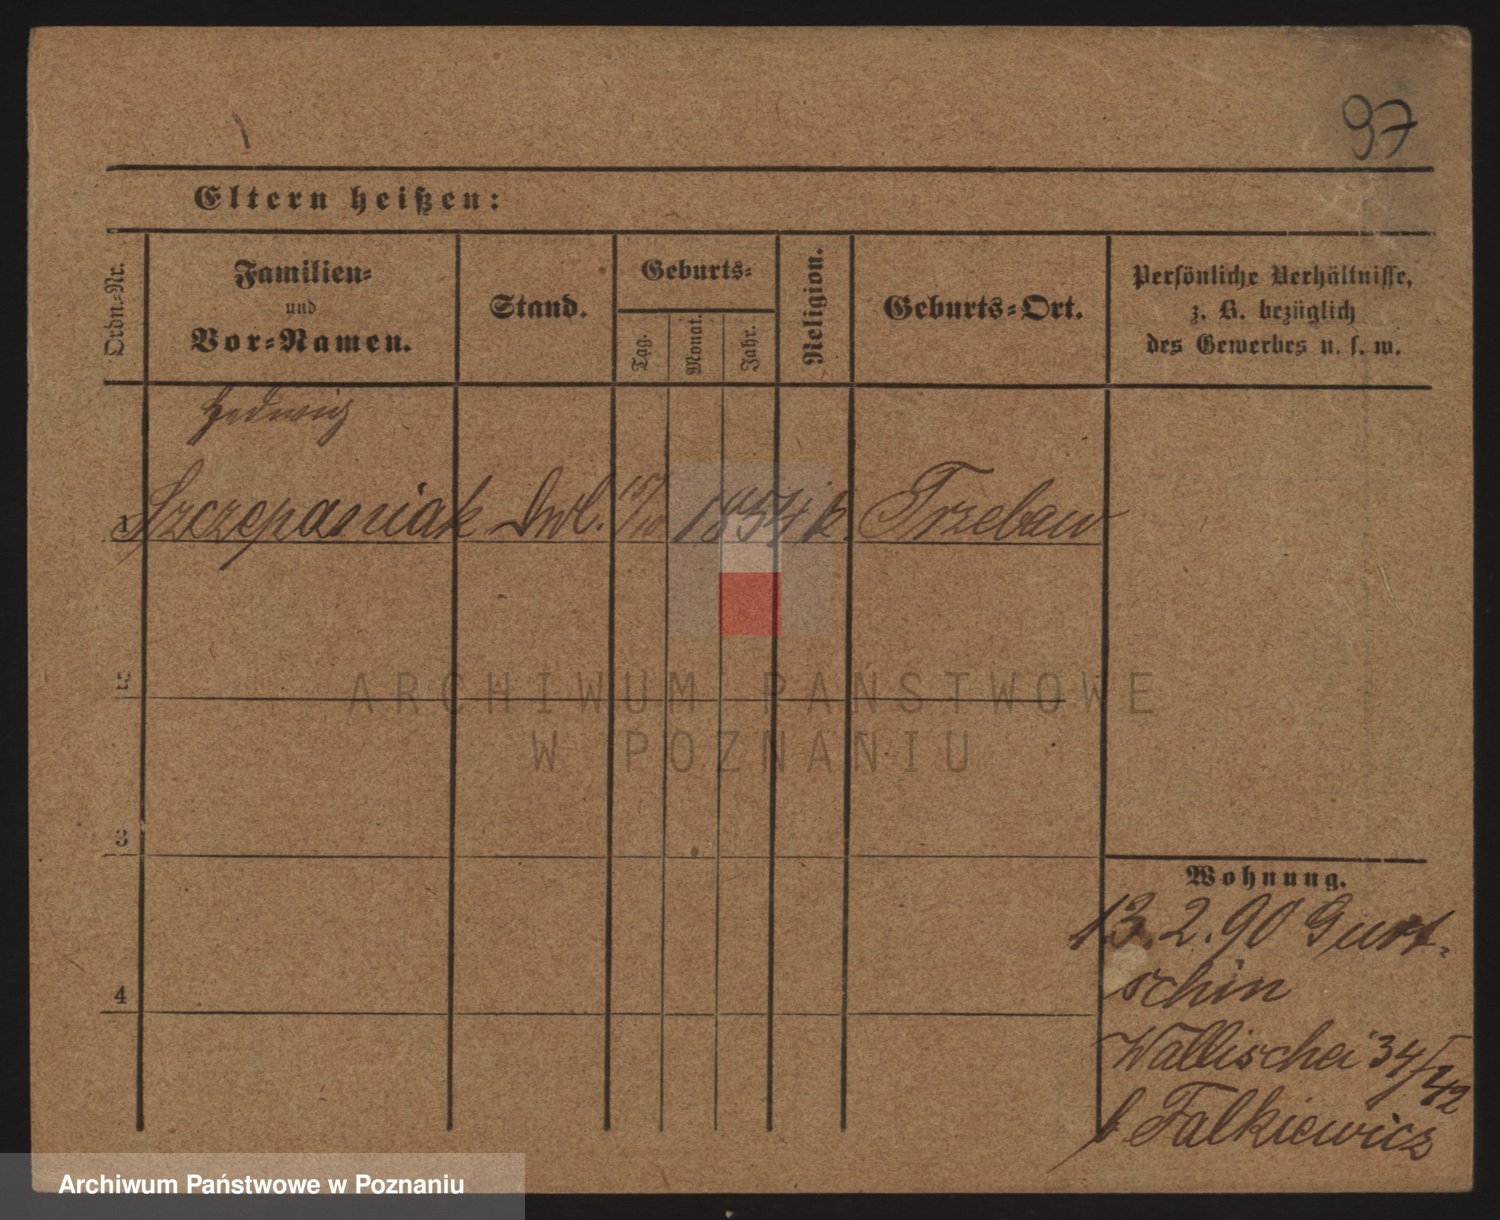 97
Eltern heißen:
Ordn.-Nr.
Familien-
und
Vor-Namen.
Stand.
Geburts-
Tag.
Monat.
Jahr.
Religion.
Geburts-Ort.
Persönliche Verhältnisse,
z. B. bezüglich
des Gewerbes u. s. w.
Hedwig
1 Szczepaniak 1854 k. Trzebaw
2
3
4
Wohnung.
13.2.90 Gurt-
schin
Wallischei 34/
b Falkiewicz
ARCHIWUM PAŃSTWOWE
W POZNANIU
Archiwum Państwowe w Poznaniu